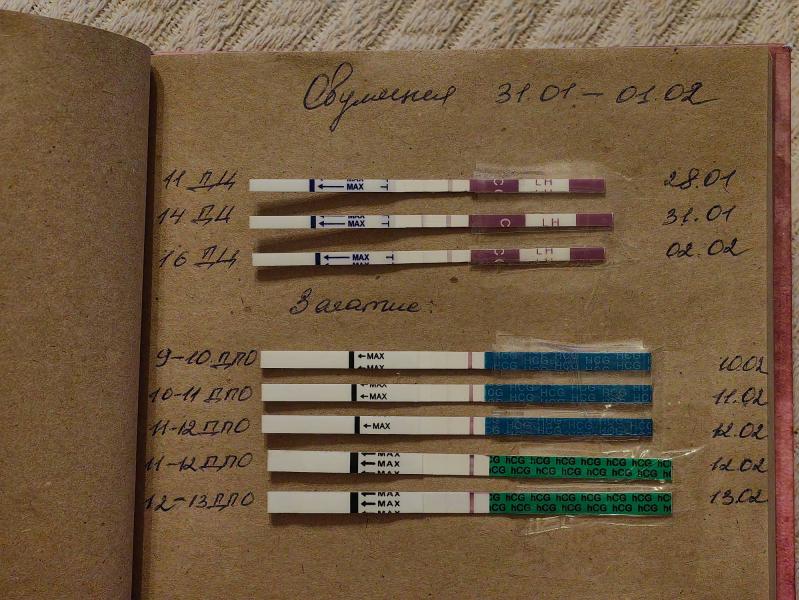 Овуляция 31.01 - 01.02
11 ДЦ ← MAX LH 28.01
14 ДЦ ← MAX C LH 31.01
16 ДЦ ← MAX LH 02.02
Зачатие:
9-10 ДПО ← MAX HCG HCG HCG 10.02
10-11 ДПО ← MAX HCG HCG HCG 11.02
11-12 ДПО ← MAX 12.02
11-12 ДПО ← MAX hCG hCG hCG hCG hCG 12.02
12-13 ДПО ← MAX hCG hCG hCG hCG hCG 13.02